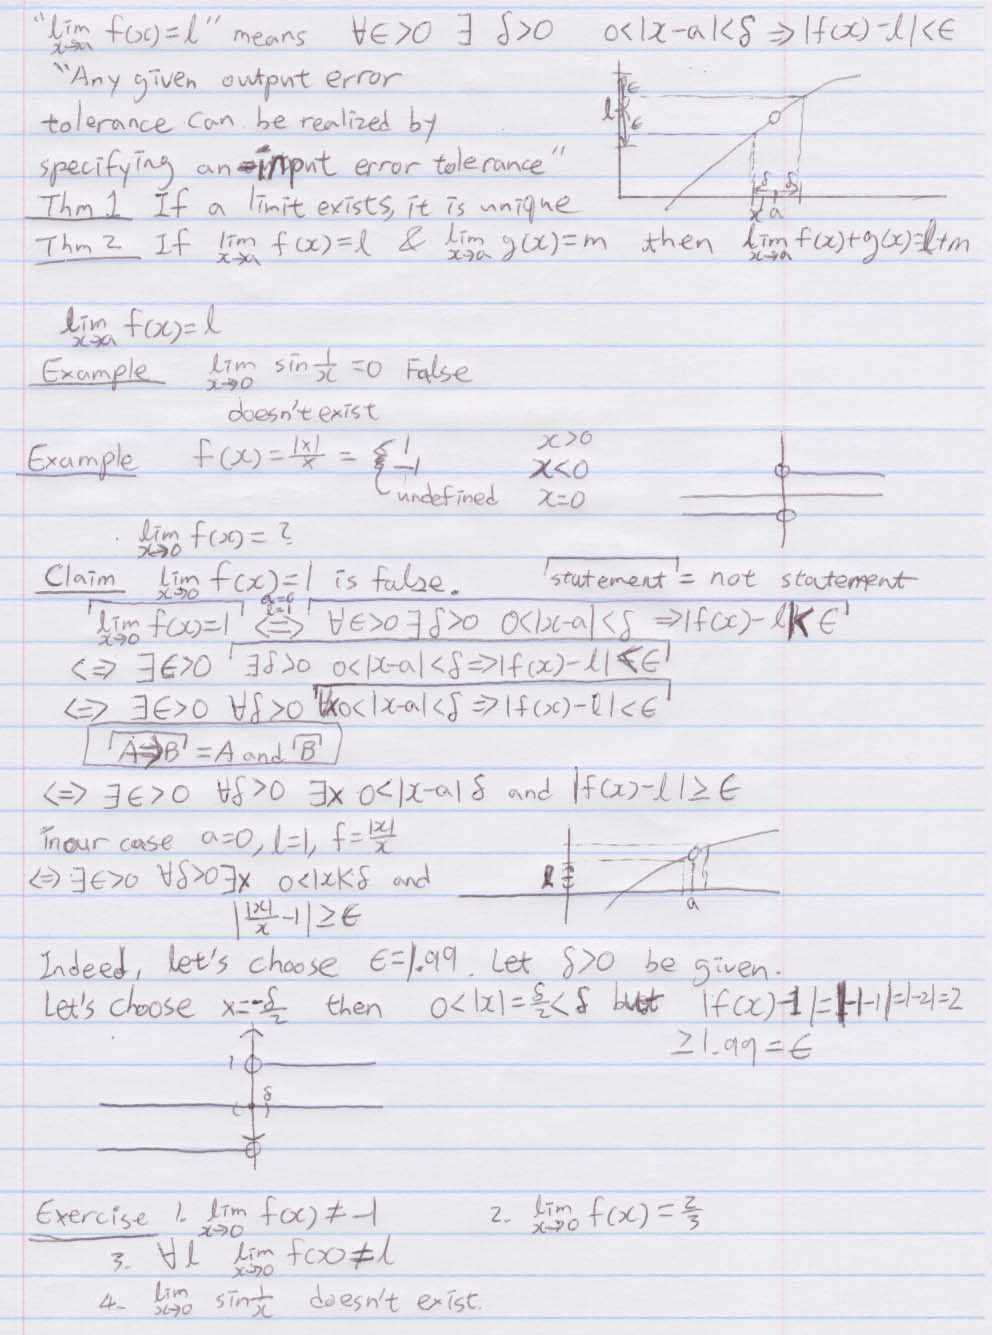 "lim x→a f(x)=l" means ∀ϵ>0 ∃ δ>0 0<|x-a|<δ ⇒|f(x)-l|<ϵ
"Any given output error
tolerance can be realized by
specifying an input error tolerance"
l ϵ ϵ δ δ x a
Thm 1 If a limit exists, it is unique
Thm 2 If lim x→a f(x)=l & lim x→a g(x)=m then lim x→a f(x)+g(x)=l+m
lim x→a f(x)=l
Example lim x→0 sin 1/x =0 False
doesn't exist
Example f(x)=|x|/x = { 1 x>0
-1 x<0
undefined x=0
lim x→0 f(x)=?
Claim lim x→0 f(x)=1 is false. ⌈statement⌉ = not statement
⌈lim x→0 f(x)=1⌉ a=0 l=1 <=> ⌈∀ϵ>0 ∃δ>0 0<|x-a|<δ ⇒|f(x)-l|<ϵ⌉
<=> ∃ϵ>0 ⌈∃δ>0 0<|x-a|<δ=>|f(x)-l|<ϵ⌉
<=> ∃ϵ>0 ∀δ>0 ⌈∀x 0<|x-a|<δ =>|f(x)-l|<ϵ⌉
⌈A=>B⌉ = A and ⌈B⌉
<=> ∃ϵ>0 ∀δ>0 ∃x 0<|x-a| δ and |f(x)-l|≥ϵ
in our case a=0, l=1, f=|x|/x
<=> ∃ϵ>0 ∀δ>0 ∃x 0<|x|<δ and
l a
||x|/x -1|≥ϵ
Indeed, let's choose ϵ=1.99. Let δ>0 be given.
Let's choose x=-δ/2 then 0<|x|=δ/2<δ but |f(x)-1|=|-1-1|=|-2|=2
≥1.99=ϵ
1 δ
Exercise 1. lim x→0 f(x)≠-1 2. lim x→0 f(x)=2/3
3. ∀l lim x→0 f(x)≠l
4. lim x→0 sin 1/x doesn't exist.